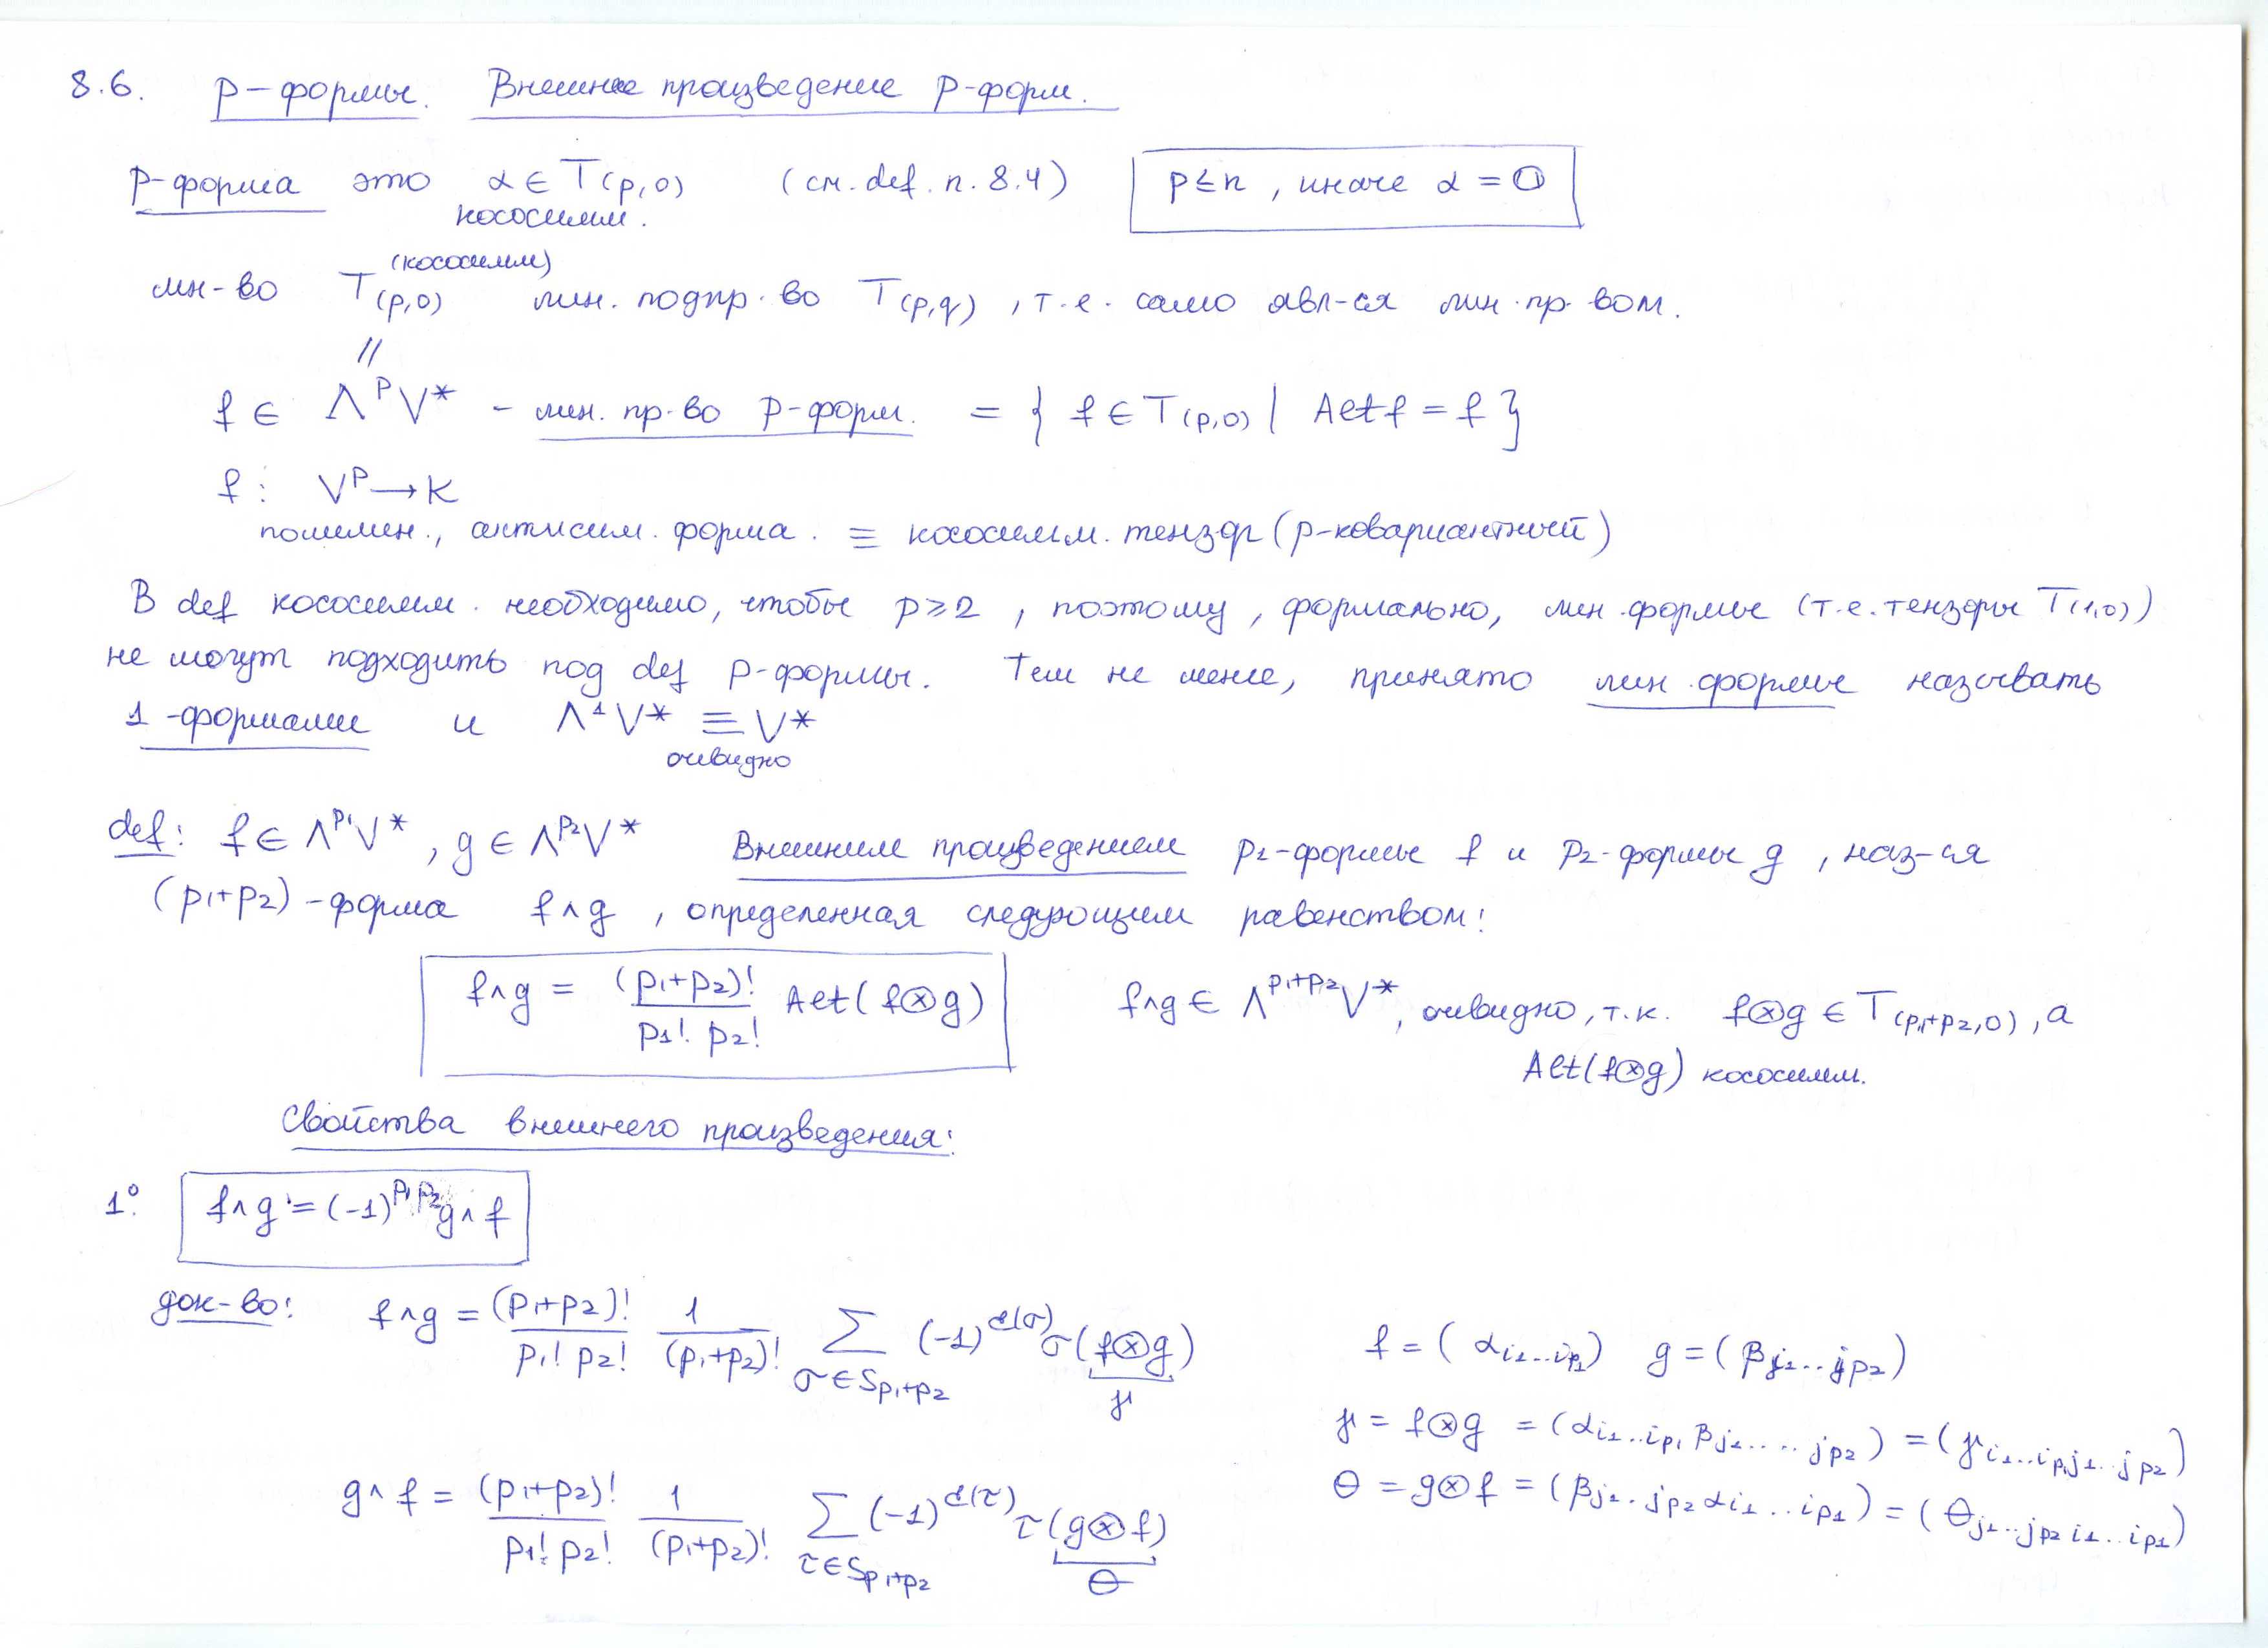 8.6. p-формы. Внешнее произведение p-форм.
p-форма это α ∈ T(p,0) (см. def. п. 8.4) p ≤ n, иначе α = 𝟘
кососимм.
мн-во T(p,0)^(кососимм) лин. подпр-во T(p,q), т.е. само явл-ся лин. пр-вом.
||
f ∈ Λ^p V* - лин. пр-во p-форм. = { f ∈ T(p,0) | Alt f = f }
f : V^p → K
полилин., антисим. форма. ≡ кососимм. тензор (p-ковариантный)
В def кососимм. необходимо, чтобы p ≥ 2, поэтому, формально, лин. формы (т.е. тензоры T(1,0))
не могут подходить под def p-формы. Тем не менее, принято лин. формы называть
1-формами и Λ^1 V* ≡ V*
очевидно
def: f ∈ Λ^p₁ V*, g ∈ Λ^p₂ V* Внешним произведением p₁-формы f и p₂-формы g, наз-ся
(p₁+p₂)-форма f∧g, определенная следующим равенством:
f∧g = (p₁+p₂)! / (p₁! p₂!) Alt(f⊗g) f∧g ∈ Λ^(p₁+p₂) V*, очевидно, т.к. f⊗g ∈ T(p₁+p₂,0), а
Alt(f⊗g) кососимм.
Свойства внешнего произведения:
1° f∧g = (-1)^(p₁p₂) g∧f
док-во: f∧g = (p₁+p₂)! / (p₁! p₂!) 1 / (p₁+p₂)! Σ_(σ∈S_(p₁+p₂)) (-1)^(d(σ)) σ(f⊗g) f = (α_(i₁..i_p₁)) g = (β_(j₁..j_p₂))
γ
γ = f⊗g = (α_(i₁..i_p₁) β_(j₁....j_p₂)) = (γ_(i₁..i_p₁ j₁..j_p₂))
θ = g⊗f = (β_(j₁..j_p₂) α_(i₁..i_p₁)) = (θ_(j₁..j_p₂ i₁..i_p₁))
g∧f = (p₁+p₂)! / (p₁! p₂!) 1 / (p₁+p₂)! Σ_(τ∈S_(p₁+p₂)) (-1)^(d(τ)) τ(g⊗f)
θ